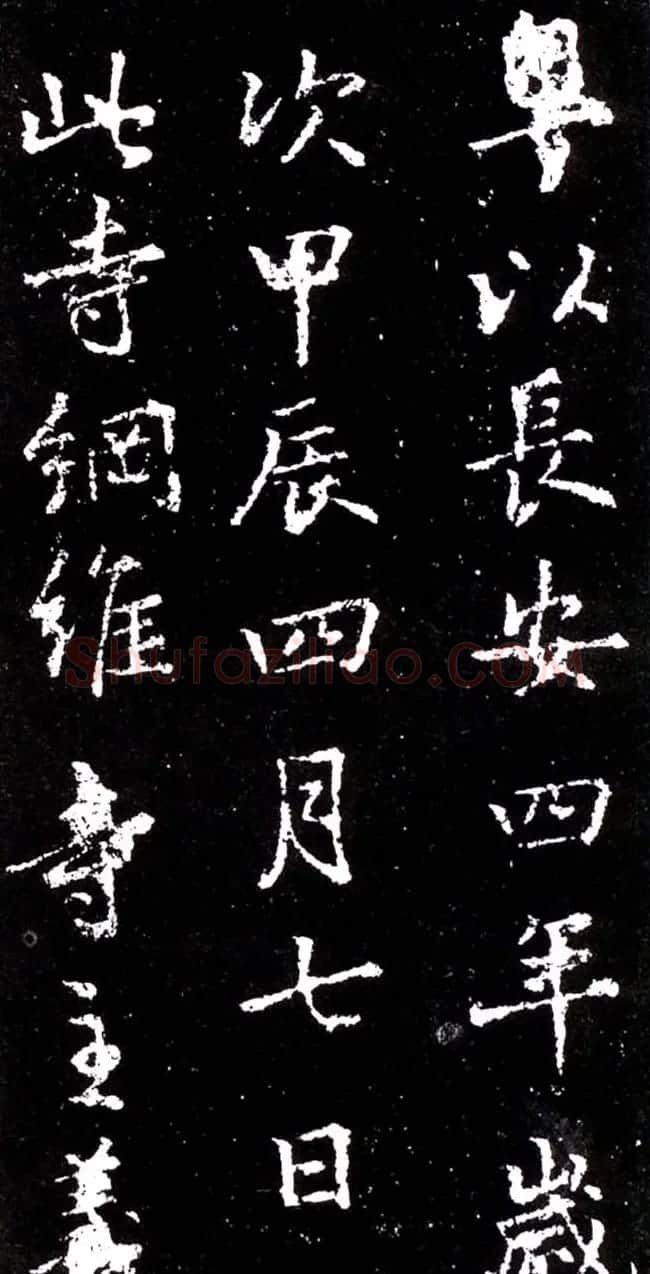 粤以長安四年歲
次甲辰四月七日
此寺綱維寺主義
Shufaziliao.COM